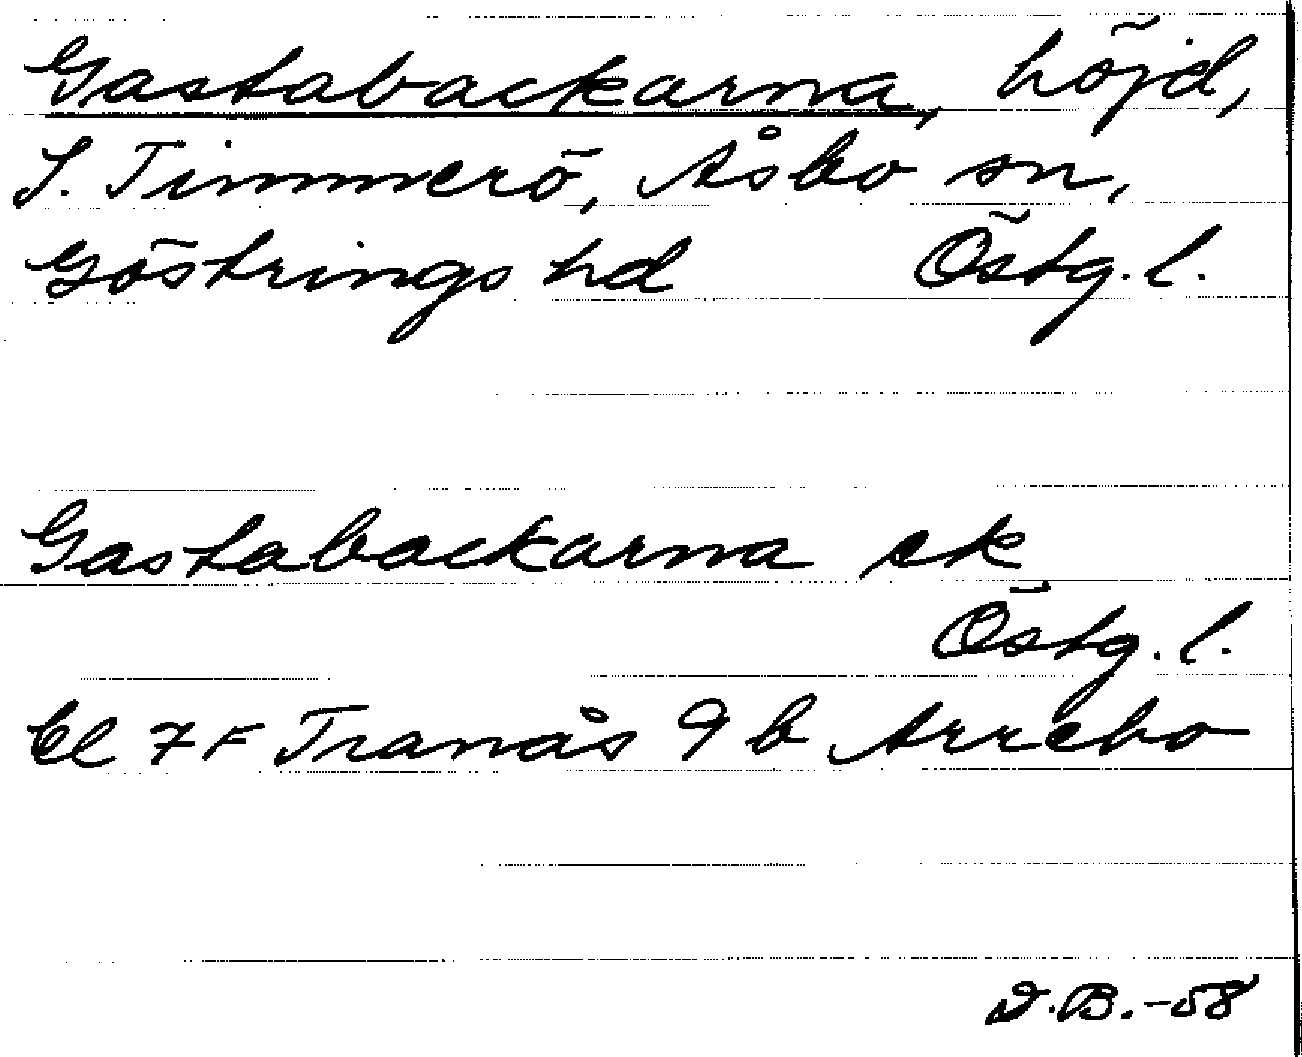 Gastabackarna, höjd,
S. Timmerö, Åsbo sn,
Göstrings hd Östg. l.
Gastabackarna ek
Östg. l.
El 7F Tranås 9 b Arrebo
D.B.-58